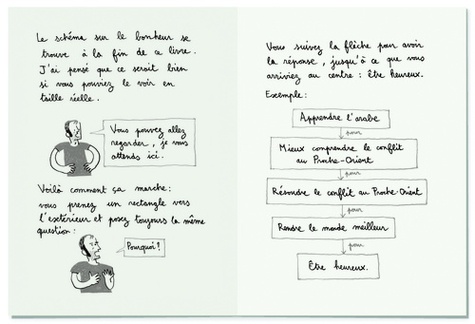 Le schéma sur le bonheur se
trouve à la fin de ce livre.
J'ai pensé que ce serait bien
si vous pouviez le voir en
taille réelle.
Vous pouvez allez
regarder, je vous
attends ici.
Voilà comment ça marche:
vous prenez un rectangle vers
l'extérieur et posez toujours la même
question:
Pourquoi?
Vous suivez la flèche pour avoir
la réponse, jusqu'à ce que vous
arriviez au centre: être heureux.
Exemple:
Apprendre l'arabe
pour
Mieux comprendre le conflit
au Proche-Orient
pour
Résoudre le conflit au Proche-Orient
pour
Rendre le monde meilleur
pour
Être heureux.